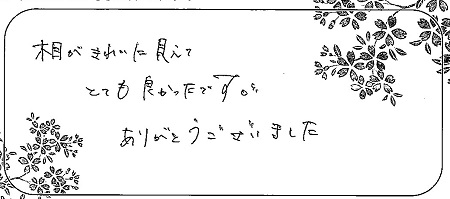 相がきれいに見えて
とても良かったです。
ありがとうございました